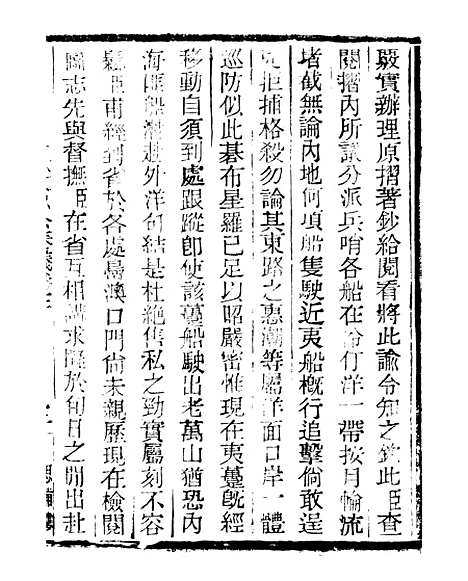 嚴實辦理原摺著鈔給閱看將此諭令知之欽此臣查
閱摺內所議分派兵哨各船在伶仃洋一帶按月輪流
堵截無論內地何項船隻駛近夷船概行追擊倘敢逞
兇拒捕格殺勿論其東路之惠潮等屬洋面口岸一體
巡防似此碁布星羅已足以昭嚴密惟現在夷躉旣經
移動自須到處跟蹤卽使該躉船駛出老萬山猶恐內
海匪船潛赴外洋勾結是杜絶售私之勁實屬刻不容
鬆臣甫經到省於各處島澳口門尙未親歷現在檢閱
圖志先與督撫臣在省互相講求擬於旬日之間出赴